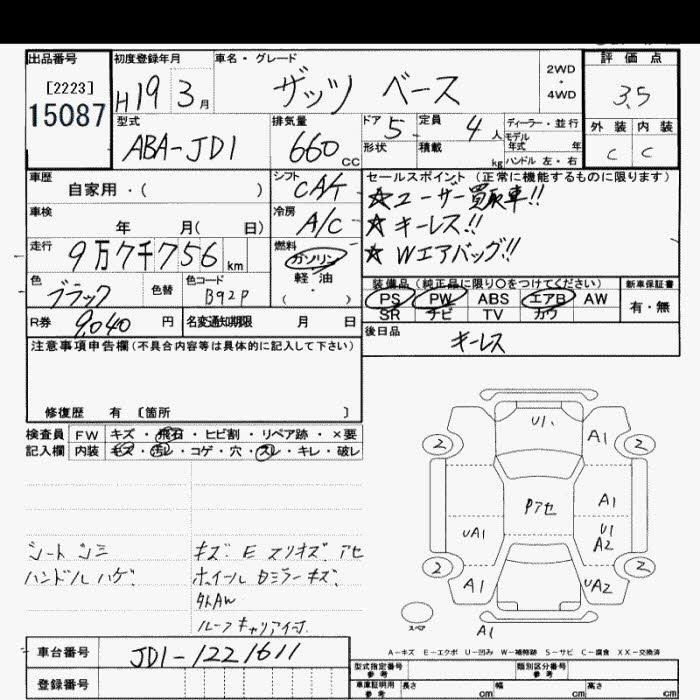 出品番号 初度登録年月 車名・グレード 評価点
[2223]
15087
H19 3月
ザッツ ベース
2WD
・
4WD
3.5
型式 排気量 ドア 定員 ディーラー・並行 外装 内装
ABA-JD1 660cc 5 4人
モデル年式 年
形状 積載 kg ハンドル 左・右
C C
車歴 シフト セールスポイント (正常に機能するものに限ります)
自家用・( ) CA/T
☆ユーザー買取車!!
車検 冷房
年 月( 日) A/C
☆キーレス!!
走行 燃料
9万7千756km ガソリン
☆Wエアバッグ!!
軽油
( ・ )
色 色替 色コード 装備品 (純正品に限り○をつけてください) 新車保証書
ブラック B92P
PS PW ABS エアB AW 有・無
SR ナビ TV カワ
R券 9,040円 名変通知期限 月 日
後日品
キーレス
注意事項申告欄(不具合内容等は具体的に記入して下さい)
修復歴 有 〔箇所 〕
検査員 FW キズ・飛石・ヒビ割・リペア跡・×要
記入欄 内装 キズ・汚レ・コゲ・穴・スレ・キレ・破レ
シートシミ
ハンドルハゲ
キズ E スリキズ アセ
ホイール Dミラーキズ
外AW
ルーフキャリア付
U1
A1
2
2
Pアセ
A1
UA1
U1
A2
2
2
A1
UA2
スペア
A1
A-キズ E-エクボ U-凹み W-補修跡 S-サビ C-腐食 XX-交換済
車台番号 JD1-1221611
登録番号
型式指定番号 参考 類別区分番号 参考
車庫証明用 参考 長さ cm 幅 cm 高さ cm